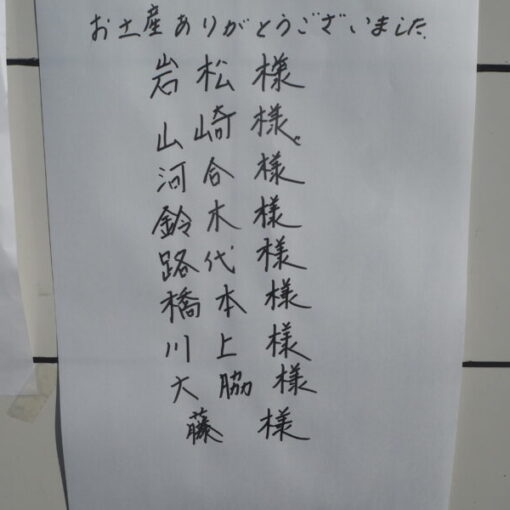 お土産ありがとうございました.
岩松様
山崎様
河合様
鈴木様
路代様
橋本様
川上様
大脇様
藤様